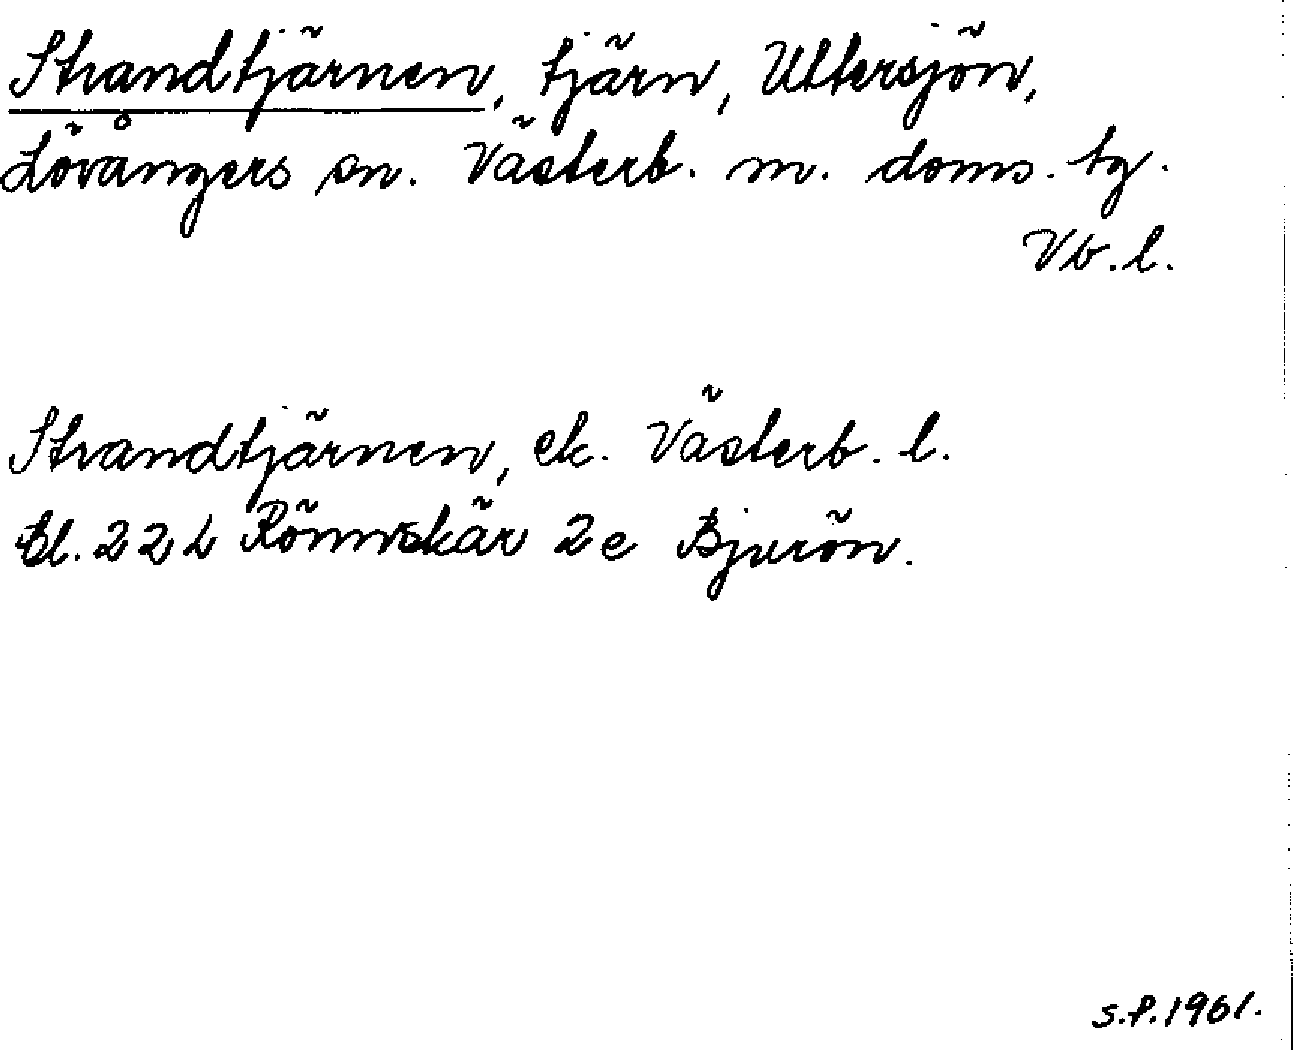 Strandtjärnen, tjärn, Uttersjön,
Lövångers sn. Västerb. m. doms. tg.
Vb. l.
Strandtjärnen, ek. Västerb. l.
Bl. 22L Rönnskär 2e Bjurön.
S.P. 1961.